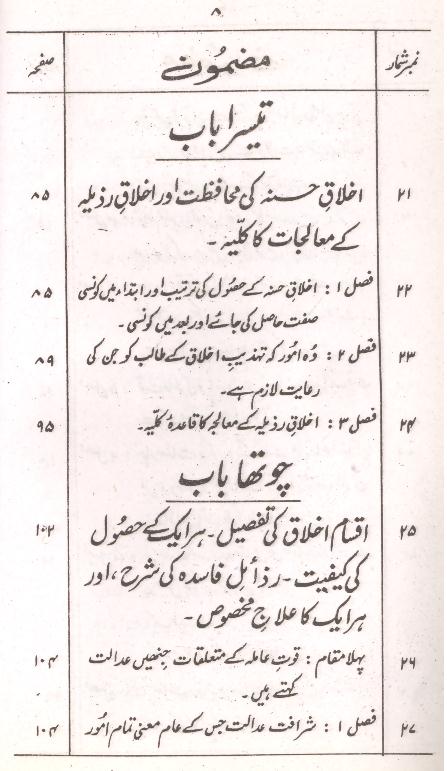 ۸
نمبر شمار مضمون صفحہ
تیسرا باب
۲۱ اخلاقِ حسنہ کی محافظت اور اخلاقِ رذیلہ ۸۵
کے معالجات کا کلیّہ۔
۲۲ فصل ۱ : اخلاقِ حسنہ کے حصُول کی ترتیب اور ابتداء میں کونسی ۸۵
صفت حاصل کی جائے اور بعد میں کونسی۔
۲۳ فصل ۲ : وُہ امُور کہ تہذیبِ اخلاق کے طالب کو جن کی ۸۹
رعایت لازم ہے۔
۲۴ فصل ۳ : اخلاقِ رذیلہ کے معالجہ کا قاعدۂ کلیّہ۔ ۹۵
چوتھا باب
۲۵ اقسامِ اخلاق کی تفصیل۔ ہر ایک کے حصُول ۱۰۲
کی کیفیت۔ رذائلِ فاسدہ کی شرح، اور
ہر ایک کا علاجِ مخصُوص۔
۲۶ پہلا مقام : قوتِ عاملہ کے متعلقات جنھیں عدالت ۱۰۴
کہتے ہیں۔
۲۷ فصل ۱ : شرافتِ عدالت جس کے عام معنی تمام امُور ۱۰۴